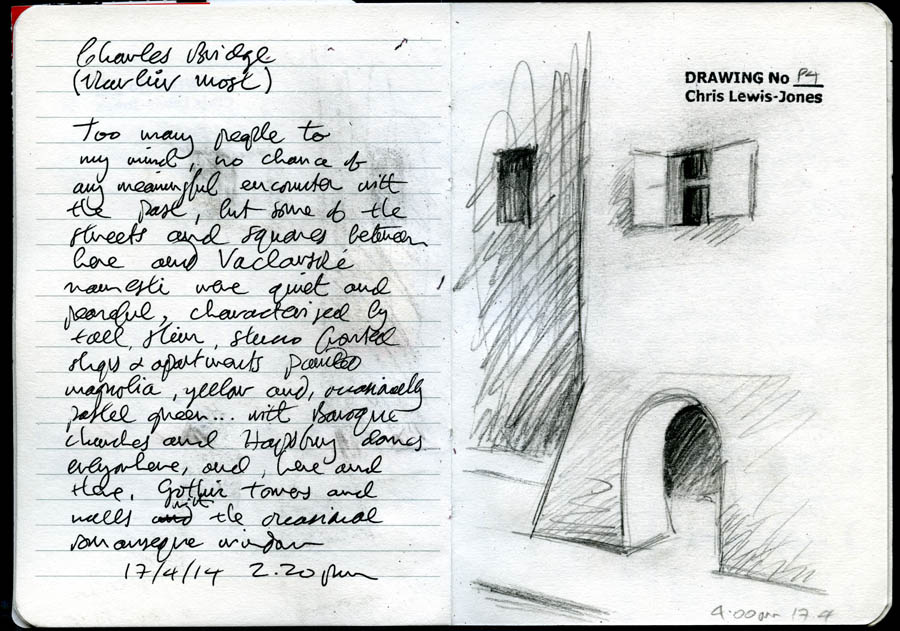 Charles Bridge
(Karlův most)
Too many people to
my mind, no chance of
any meaningful encounter with
the past, but some of the
streets and squares between
here and Vaclavské
namesti were quiet and
peaceful, characterised by
tall, slim, stucco fronted
shops & apartments painted
magnolia, yellow and, occasionally
pastel green... with Baroque
churches and Hapsburg domes
everywhere, and, here and
there, Gothic towers and
walls with the occasional
romanesque window
17/4/14 2.20pm
DRAWING No P4
Chris Lewis-Jones
4.00pm 17.4